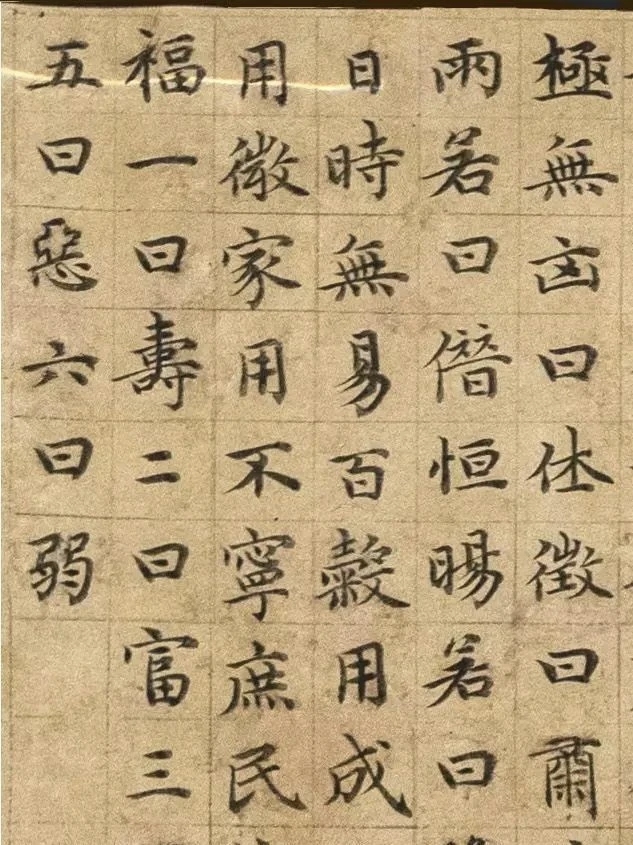 極無凶曰休徵曰肅
雨若曰僭恒暘若曰
日時無易百穀用成
用微家用不寧庶民
福一曰壽二曰富三
五曰惡六曰弱